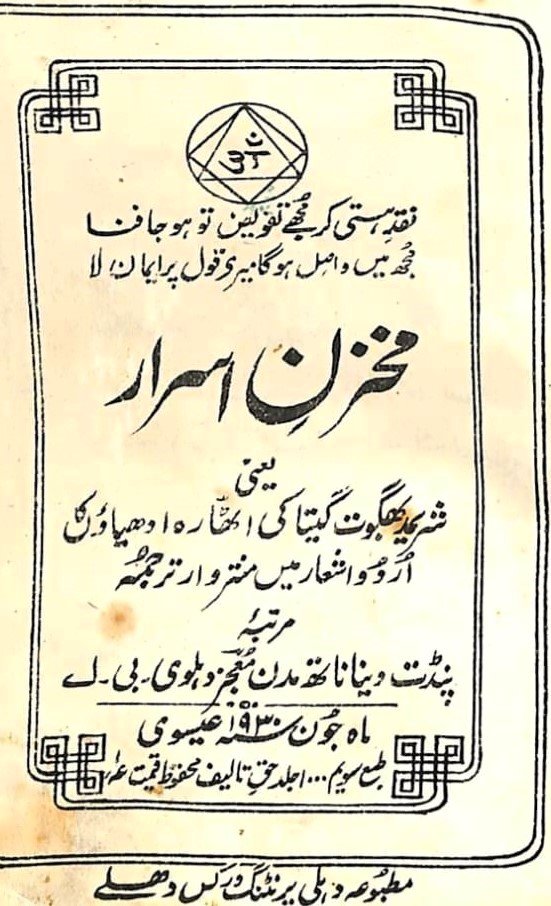 ॐ
نقدِ ہستی کر مُجھے تفویض تو ہو جا فنا
مُجھ میں واصل ہوگا میری قول پر ایمان لا
مخزنِ اسرار
یعنی
شریمد بھگوت گیتا کی اٹھارہ ادھیاؤں کا
اُردو اشعار میں منتر وار ترجمہ
مرتبۂ
پنڈت دینا ناتھ مدن معجز دہلوی۔ بی۔ اے
ماہ جُون ۱۹۳۰ء عیسوی
طبع سویم ۱۰۰۰ جلد حق تالیف محفوظ قیمت
مطبُوعہ دہلی پرنٹنگ ورکس دھلے